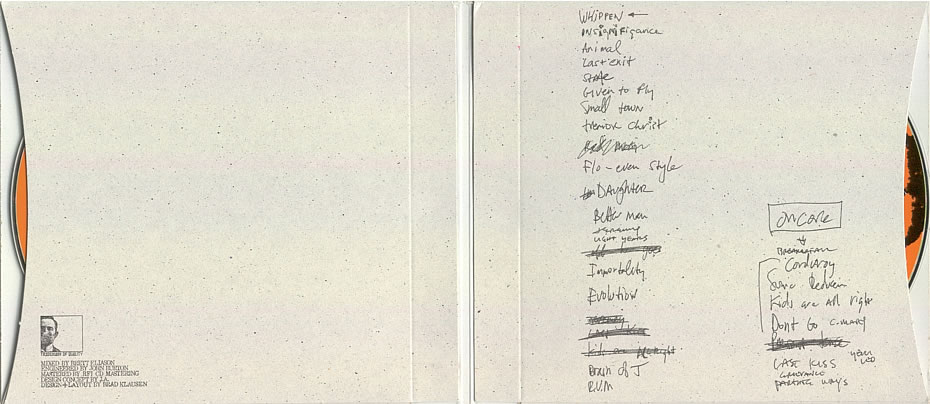 TRADEMARK OF QUALITY
MIXED BY BRETT ELIASON
ENGINEERED BY JOHN BURTON
MASTERED BY JEFF CD MASTERING
DESIGN CONCEPT BY J.A.
DESIGN + LAYOUT BY BRAD KLAUSEN
WHIPPEN ←
INSIGNIFIGANCE
Animal
Last exit
State
Given to Fly
Small town
tremor Christ
Flo-even Style
DAUGHTER
Better man
LIGHT YEARS
Immortality
Evolution
Brain of J
RVM
ONCORE
BREAKERFALL
Corduroy
Sonic Reducin
Kids are All right
Dont Go c.mary
LAST KISS
YELLOW LED
GRIEVANCE
PARTING WAYS